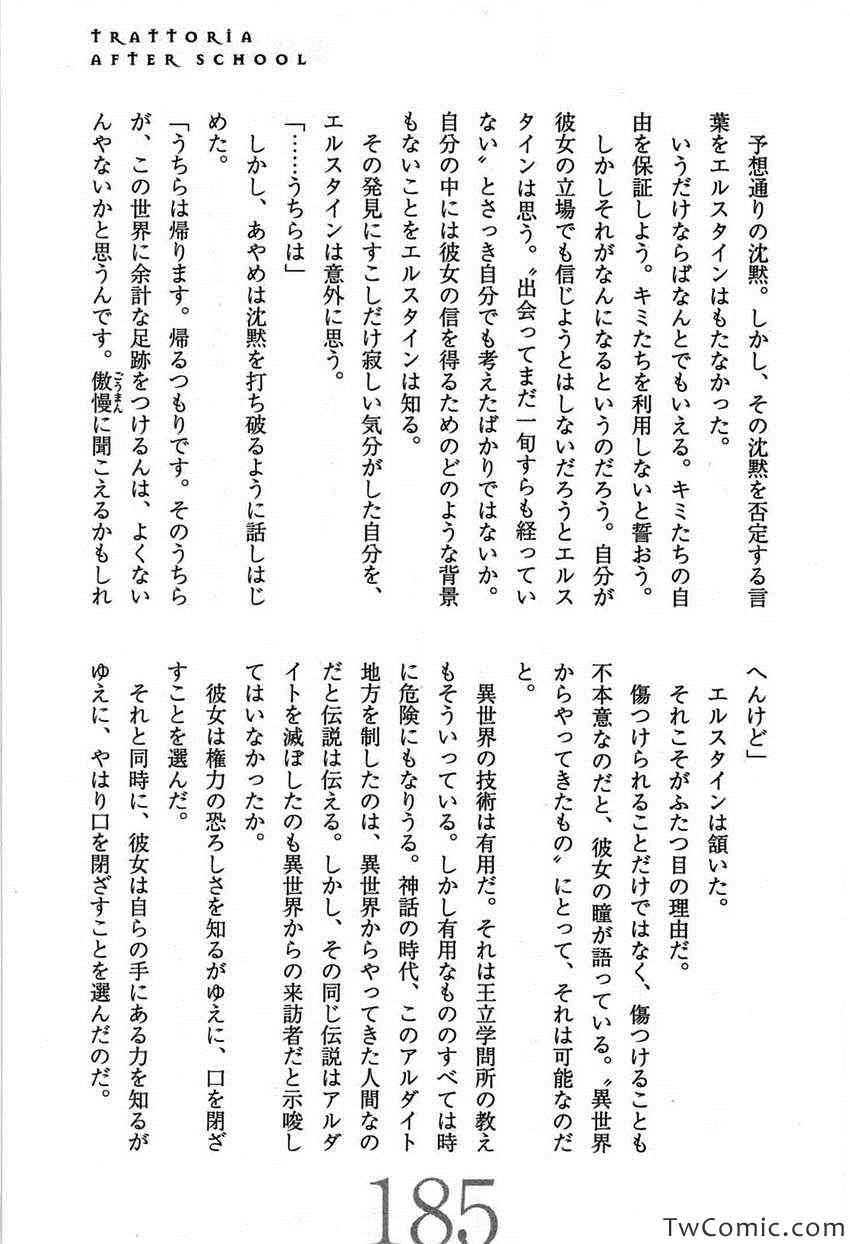 TRATTORIA
AFTER SCHOOL
予想通りの沈黙。しかし、その沈黙を否定する言
葉をエルスタインはもたなかった。
いうだけならばなんとでもいえる。キミたちの自
由を保証しよう。キミたちを利用しないと誓おう。
しかしそれがなんになるというのだろう。自分が
彼女の立場でも信じようとはしないだろうとエルス
タインは思う。〝出会ってまだ一旬すらも経ってい
ない〟とさっき自分でも考えたばかりではないか。
自分の中には彼女の信を得るためのどのような背景
もないことをエルスタインは知る。
その発見にすこしだけ寂しい気分がした自分を、
エルスタインは意外に思う。
「……うちらは」
しかし、あやめは沈黙を打ち破るように話しはじ
めた。
「うちらは帰ります。帰るつもりです。そのうちら
が、この世界に余計な足跡をつけるんは、よくない
んやないかと思うんです。傲慢に聞こえるかもしれ
ごうまん
へんけど」
エルスタインは頷いた。
それこそがふたつ目の理由だ。
傷つけられることだけではなく、傷つけることも
不本意なのだと、彼女の瞳が語っている。〝異世界
からやってきたもの〟にとって、それは可能なのだ
と。
異世界の技術は有用だ。それは王立学問所の教え
もそういっている。しかし有用なもののすべては時
に危険にもなりうる。神話の時代、このアルダイト
地方を制したのは、異世界からやってきた人間なの
だと伝説は伝える。しかし、その同じ伝説はアルダ
イトを滅ぼしたのも異世界からの来訪者だと示唆し
てはいなかったか。
彼女は権力の恐ろしさを知るがゆえに、口を閉ざ
すことを選んだ。
それと同時に、彼女は自らの手にある力を知るが
ゆえに、やはり口を閉ざすことを選んだのだ。
185
TwComic.com